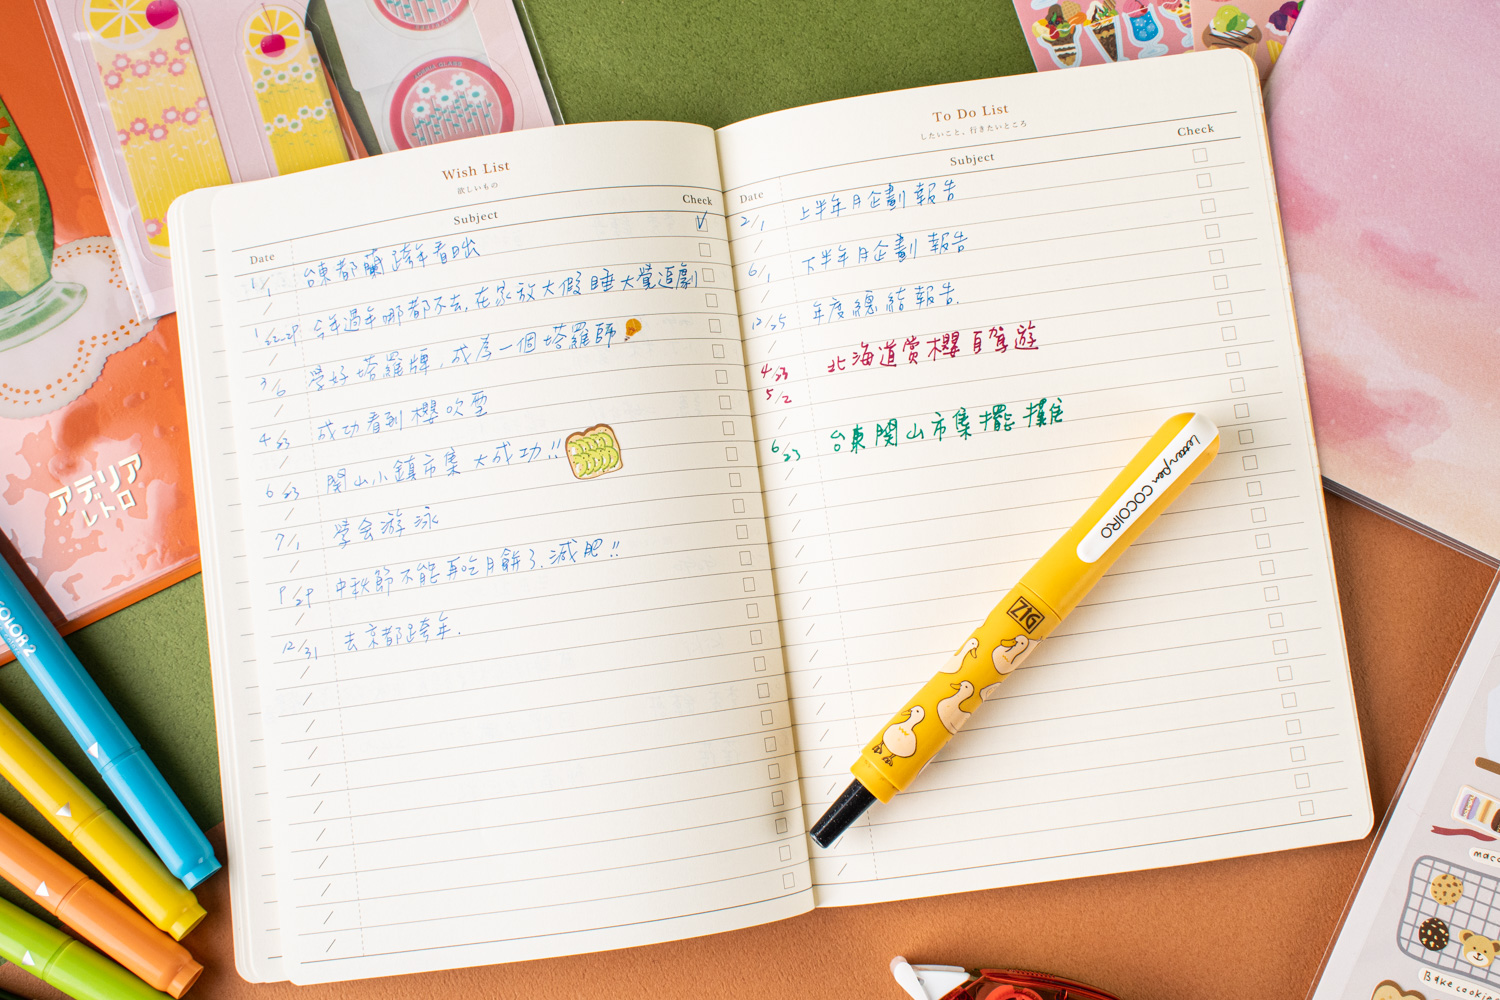 Wish List
欲しいもの
Date Subject Check
1/1 台東都蘭跨年看日出 ✓
1/22-29 今年過年哪都不去,在家放大假睡大覺追劇
3/6 學好塔羅牌,成為一個塔羅師
4/23 成功看到櫻吹雪
6/23 関山小鎮市集大成功!!
7/1 學会游泳
9/29 中秋節不能再吃月餅了.減肥!!
12/31 去京都跨年.
To Do List
したいこと、行きたいところ
Date Subject Check
2/1 上半年月企劃報告
6/1 下半年月企劃報告
12/25 年度總結報告.
4/23 北海道賞櫻自駕遊
5/2
6/23 台東関山市集擺攤
Letterpen COCOIRO
ZIG
アデリア
レトロ
COLOR 2
ADERIA GLASS
Bake cookie